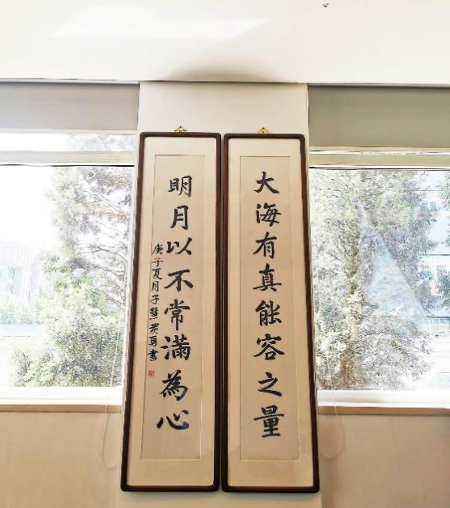 大海有真能容之量
明月以不常滿為心
庚子夏月子慧英勇書